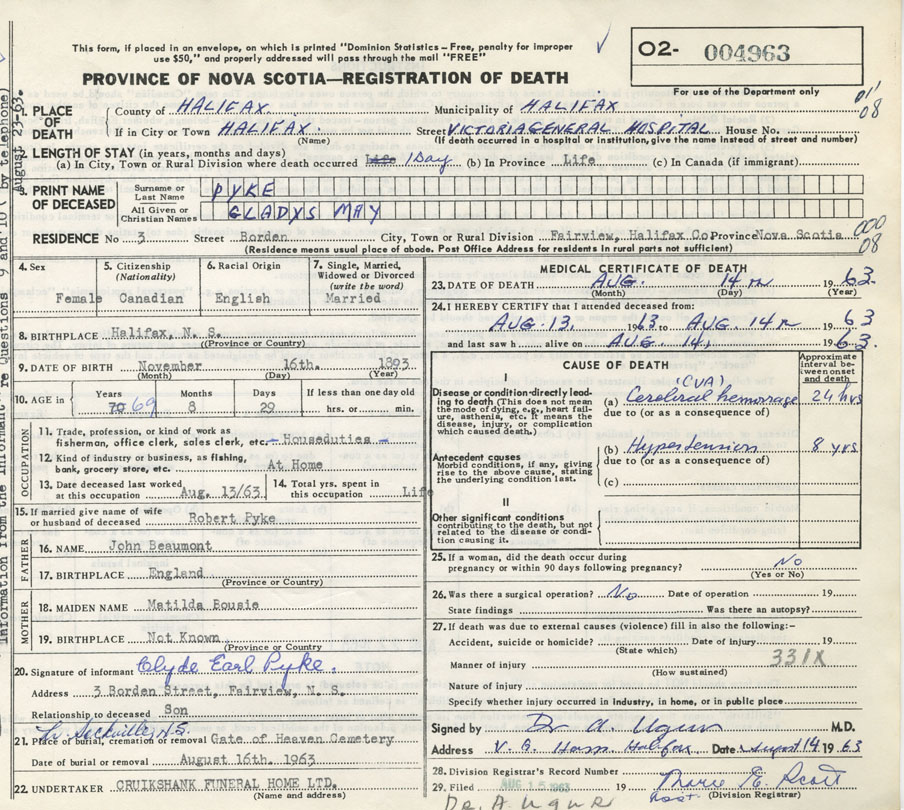 This form, if placed in an envelope, on which is printed "Dominion Statistics – Free, penalty for improper
use $50," and properly addressed will pass through the mail "FREE"
PROVINCE OF NOVA SCOTIA—REGISTRATION OF DEATH
O2- 004963
For use of the Department only
August 23-63.
re Questions 9 and 10 ( by telephone)
Information from the informant
1. PLACE OF DEATH
County of HALIFAX. Municipality of HALIFAX
If in City or Town HALIFAX. Street VICTORIA GENERAL HOSPITAL House No.
(Name) (If death occurred in a hospital or institution, give the name instead of street and number)
011
08
2. LENGTH OF STAY (in years, months and days)
(a) In City, Town or Rural Division where death occurred Life 1 Day (b) In Province Life (c) In Canada (if immigrant)
3. PRINT NAME OF DECEASED
Surname or Last Name PYKE
All Given or Christian Names GLADYS MAY
RESIDENCE No 3 Street Borden City, Town or Rural Division Fairview, Halifax Co Province Nova Scotia
(Residence means usual place of abode. Post Office Address for residents in rural parts not sufficient)
000
08
4. Sex Female
5. Citizenship (Nationality) Canadian
6. Racial Origin English
7. Single, Married, Widowed or Divorced (write the word) Married
8. BIRTHPLACE Halifax, N. S.
(Province or Country)
9. DATE OF BIRTH November 16th. 1893
(Month) (Day) (Year)
10. AGE in Years 70 69 Months 8 Days 29 If less than one day old hrs. or min.
OCCUPATION
11. Trade, profession, or kind of work as
fisherman, office clerk, sales clerk, etc. - Houseduties -
12. Kind of industry or business, as fishing,
bank, grocery store, etc. At Home
13. Date deceased last worked
at this occupation Aug. 13/63
14. Total yrs. spent in
this occupation Life
15. If married give name of wife
or husband of deceased Robert Pyke
FATHER
16. NAME John Beaumont
17. BIRTHPLACE England
(Province or Country)
MOTHER
18. MAIDEN NAME Matilda Bousie
19. BIRTHPLACE Not Known
(Province or Country)
20. Signature of informant Clyde Earl Pyke.
Address 3 Borden Street, Fairview, N. S.
Relationship to deceased Son
Sackville N.S.
21. Place of burial, cremation or removal Gate of Heaven Cemetery
Date of burial or removal August 16th. 1963
22. UNDERTAKER CRUIKSHANK FUNERAL HOME LTD.
(Name and address)
MEDICAL CERTIFICATE OF DEATH
23. DATE OF DEATH AUG. 14 19 63
(Month) (Day) (Year)
24. I HEREBY CERTIFY that I attended deceased from:
AUG. 13, 1963 to AUG. 14 19 63
and last saw h alive on AUG. 14, 19 63.
CAUSE OF DEATH
Approximate interval between onset and death
I
Disease or condition directly leading to death (This does not mean the mode of dying, e.g., heart failure, asthenia, etc. It means the disease, injury, or complication which caused death.)
(CVA)
(a) Cerebral hemorrage 24 hrs
due to (or as a consequence of)
(b) Hypertension 8 yrs
due to (or as a consequence of)
Antecedent causes
Morbid conditions, if any, giving rise to the above cause, stating the underlying condition last.
(c)
II
Other significant conditions
contributing to the death, but not related to the disease or condition causing it.
25. If a woman, did the death occur during
pregnancy or within 90 days following pregnancy? No
(Yes or No)
26. Was there a surgical operation? No Date of operation 19
State findings Was there an autopsy?
27. If death was due to external causes (violence) fill in also the following:–
Accident, suicide or homicide? Date of injury 19
(State which)
331X
Manner of injury
(How sustained)
Nature of injury
Specify whether injury occurred in industry, in home, or in public place
Signed by Dr A. Ugur M.D.
Address V. G. Halifax Date August 14 19 63
28. Division Registrar's Record Number
29. Filed AUG 15 1963 19 Marie E. Scott
(Division Registrar)
Dr. A UGUR